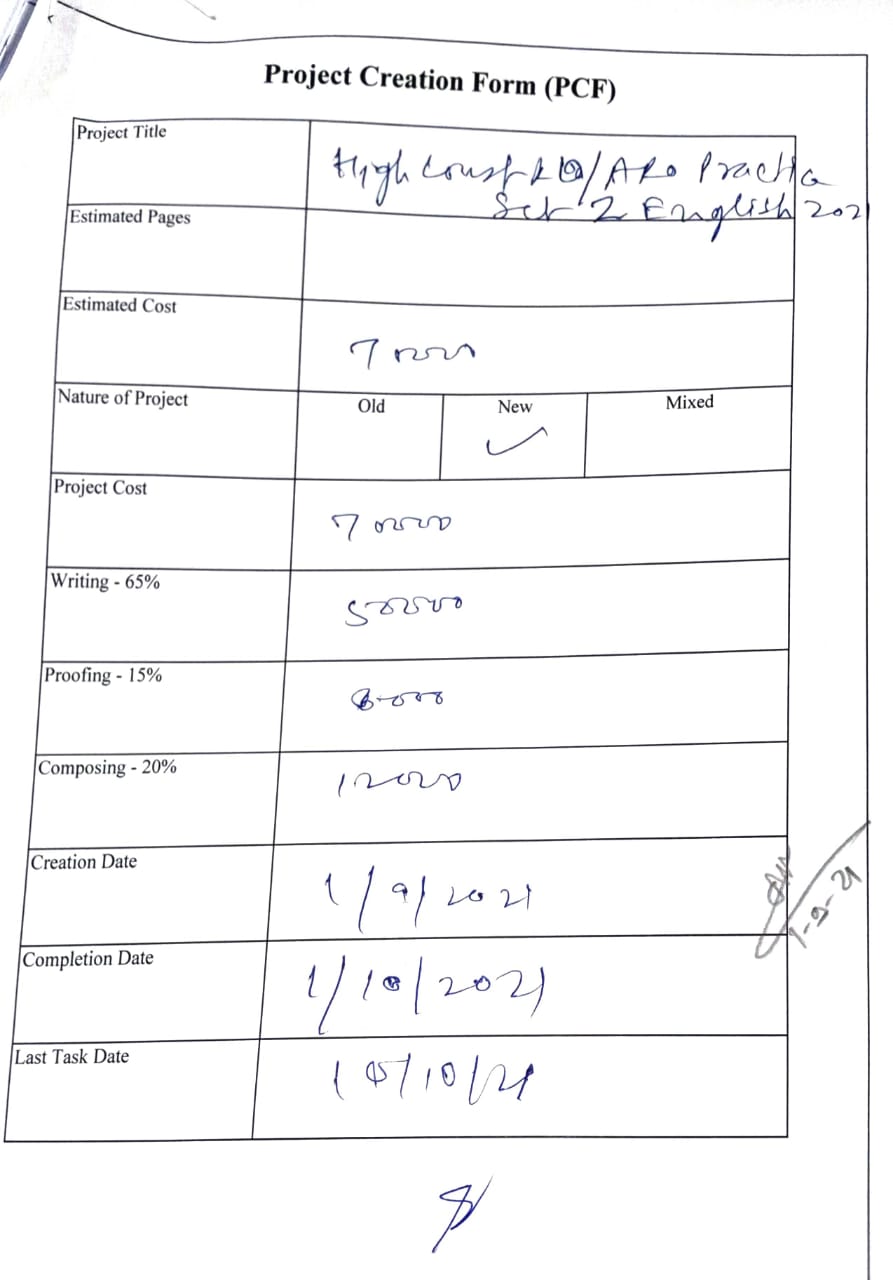 Project Creation Form (PCF)
Project Title
High Court RO/ARO Practic
Set 2 English 2021
Estimated Pages
Estimated Cost
70000
Nature of Project
Old New Mixed
Project Cost
70000
Writing - 65%
50000
Proofing - 15%
8000
Composing - 20%
12000
Creation Date
1/9/2021
1-9-21
Completion Date
1/10/2021
Last Task Date
15/10/21